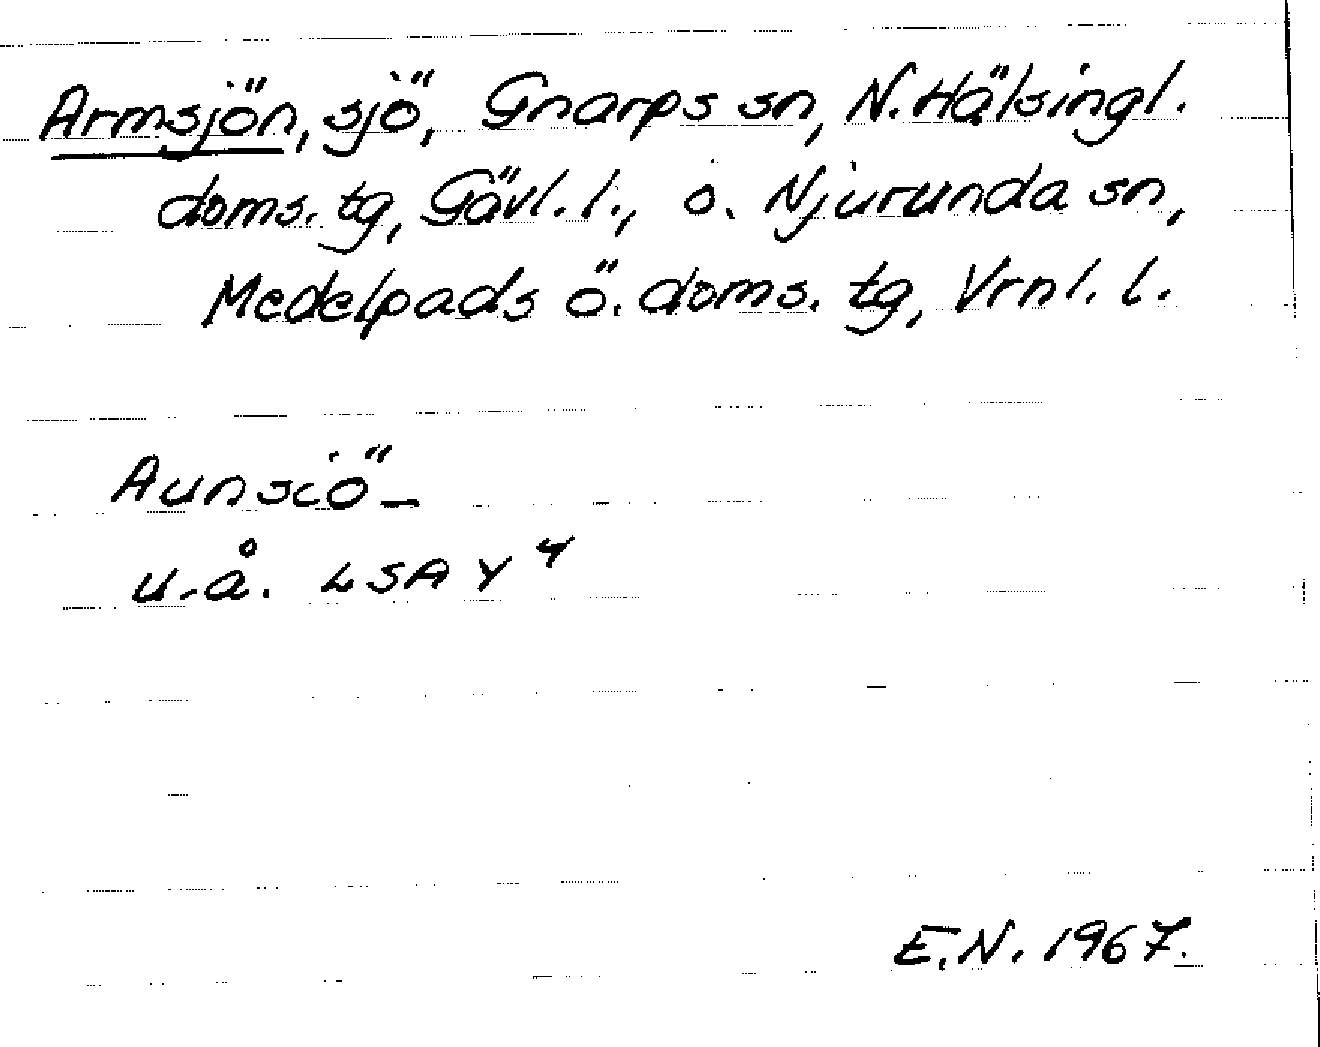 Armsjön, sjö, Gnarps sn, N. Hälsingl.
doms. tg, Gävl. l., o. Njurunda sn,
Medelpads ö. doms. tg, Vrnl. l.
Aunsiö-
u.å. LSA Y 4
E.N. 1967.